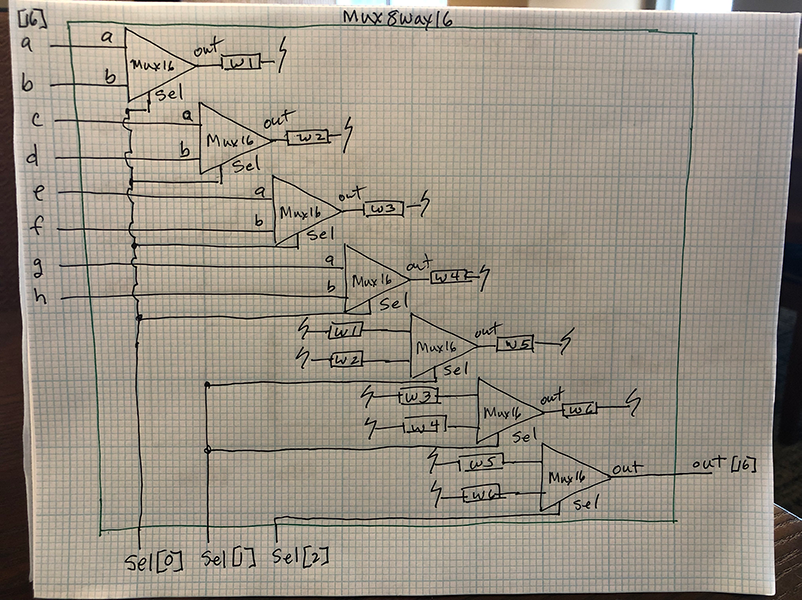 Mux8way16
[16]
a a Mux16 out w1
b b sel
c a Mux16 out w2
d b sel
e a Mux16 out w3
f b sel
g a Mux16 out w4
h b sel
w1 Mux16 out w5
w2 sel
w3 Mux16 out w6
w4 sel
w5 Mux16 out out[16]
w6 sel
sel[0] sel[1] sel[2]